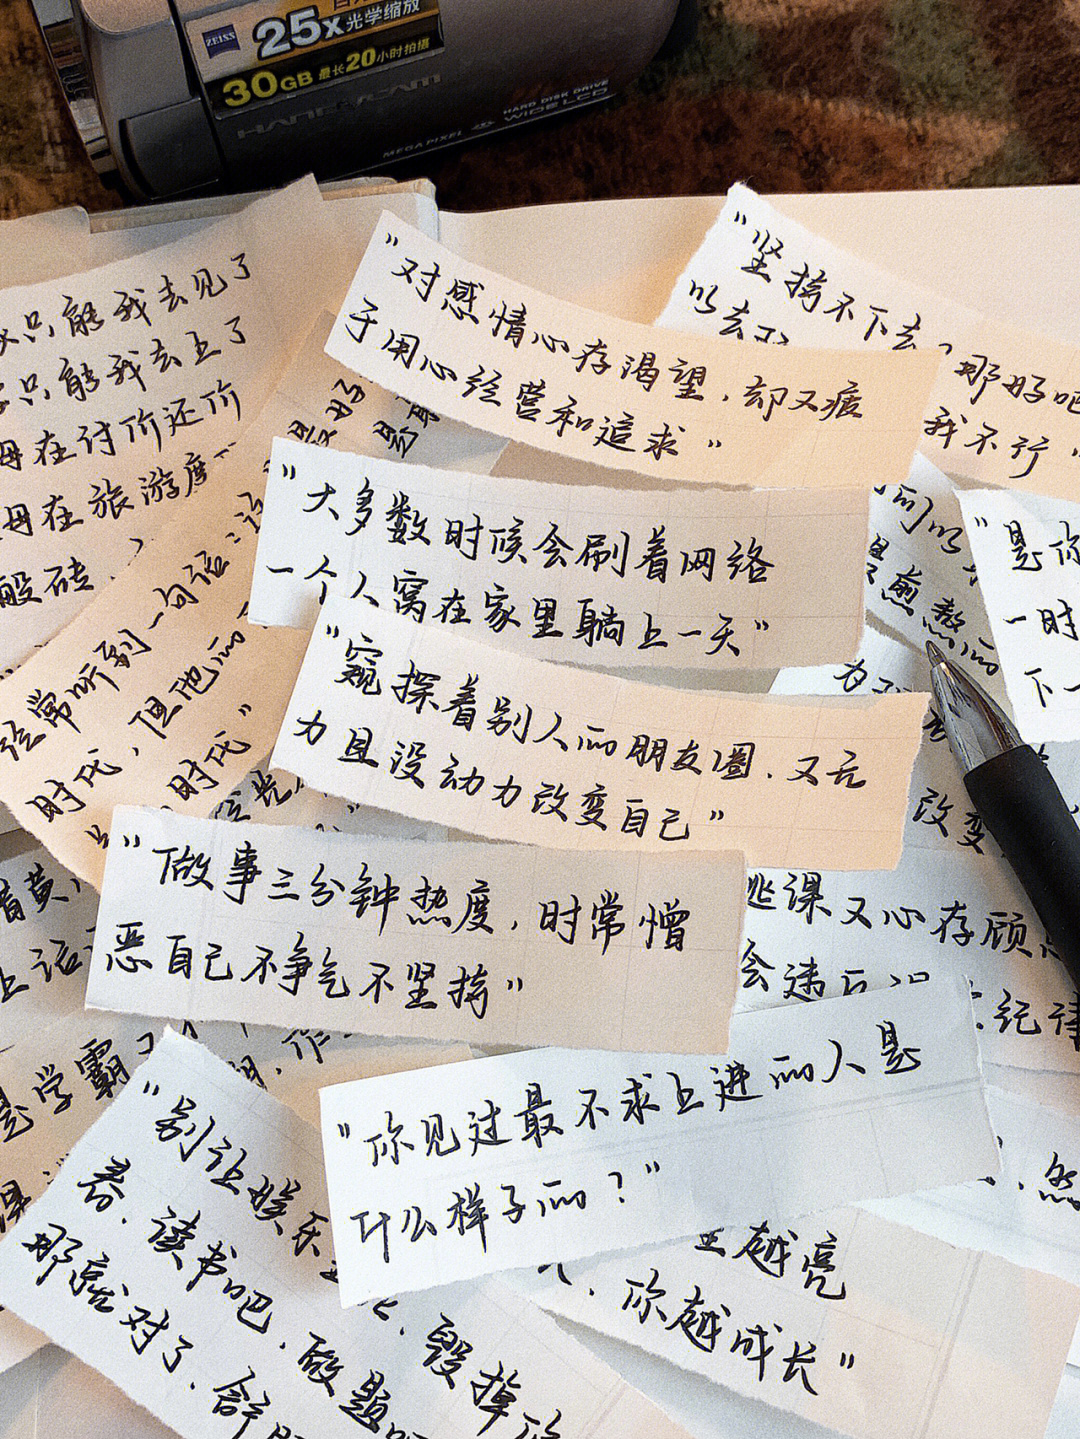 ZEISS
25x光学缩放
30GB 最长20小时拍摄
HANDYCAM
HARD DISK DRIVE
MEGA PIXEL
WIDE LCD
只能我去见了
只能我去上了
母在讨价还价
母在旅游度
般砖、
"对感情心存渴望，却又疲
于用心经营和追求"
"坚持不下去？那好吧
以去
我不行"
"大多数时候会刷着网络
一个人窝在家里躺上一天"
"窥探着别人的朋友圈、又无
力且没动力改变自己"
经常听到一句话：
时代，但他的
时代"
"是你
一时
下一
煎熬的
改变
"做事三分钟热度，时常憎
恶自己不争气不坚持"
逃课又心存顾
会违反
纪律
学霸
"你见过最不求上进的人是
什么样子的？"
"别让娱乐
春、读书吧、做题
那就对了、舒服
毁掉你
越亮
你越成长"